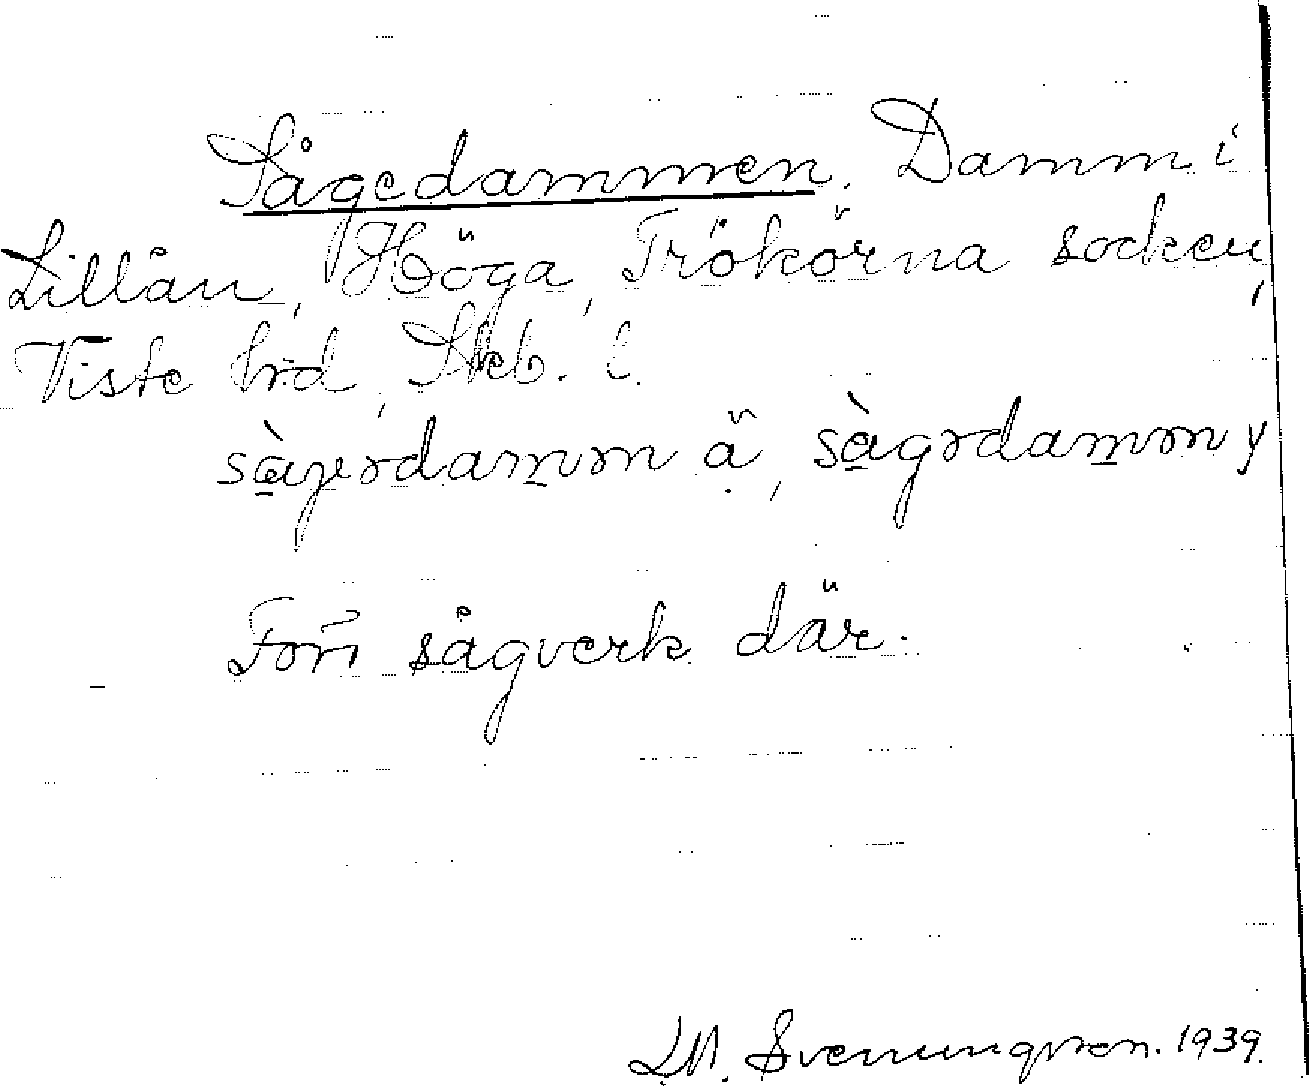 Sågedammen. Damm i
Lillån, Höga, Trökörna socken,
Viste hrd, Skb. l.
Förr sågverk där.
L.M. Svenungsson. 1939.